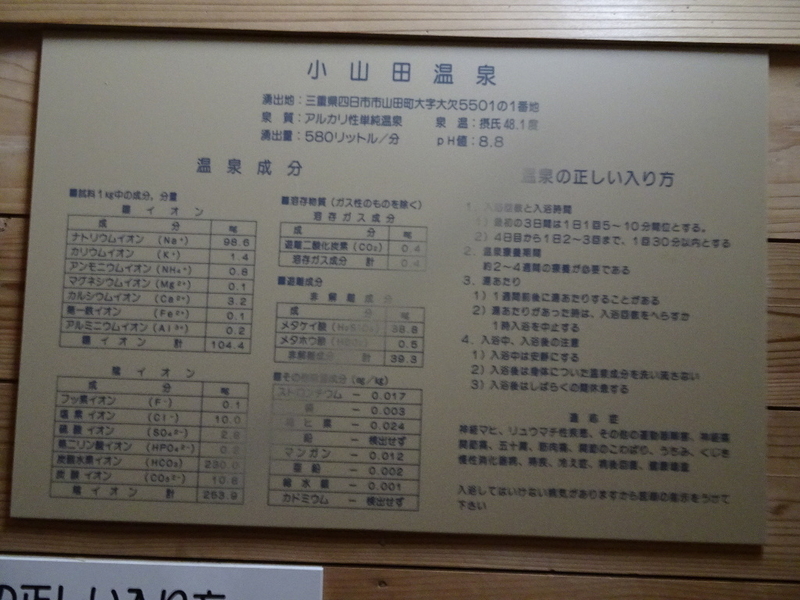 小山田温泉
湧出地：三重県四日市市山田町大字大欠5501の1番地
泉質：アルカリ性単純温泉　泉温：摂氏48.1度
湧出量：580リットル／分　pH値：8.8
温泉成分
■試料1kg中の成分，分量
陽イオン
成分　mg
ナトリウムイオン (Na⁺) 98.6
カリウムイオン (K⁺) 1.4
アンモニウムイオン (NH₄⁺) 0.8
マグネシウムイオン (Mg²⁺) 0.1
カルシウムイオン (Ca²⁺) 3.2
第一鉄イオン (Fe²⁺) 0.1
アルミニウムイオン (Al³⁺) 0.2
陽イオン計 104.4
陰イオン
成分　mg
フッ素イオン (F⁻) 0.1
塩素イオン (Cl⁻) 10.0
硫酸イオン (SO₄²⁻)
第二リン酸イオン (HPO₄²⁻)
炭酸水素イオン (HCO₃)
炭酸イオン (CO₃²⁻) 10.8
陰イオン計 253.9
■溶存物質（ガス性のものを除く）
溶存ガス成分
成分　mg
遊離二酸化炭素 (CO₂) 0.4
溶存ガス成分計 0.4
■遊離成分
非解離成分
成分　mg
メタケイ酸 38.8
メタホウ酸 0.5
非解離成分計 39.3
■その他微量成分 (mg／kg)
ストロンチウム － 0.017
銅 － 0.003
砒素 － 0.024
鉛 － 検出せず
マンガン － 0.012
亜鉛 － 0.002
総水銀 － 0.001
カドミウム － 検出せず
温泉の正しい入り方
1．入浴回数と入浴時間
1）最初の3日間は1日1回5～10分間位とする。
2）4日目から1日2～3回まで、1回30分以内とする
2．温泉療養期間
約2～4週間の療養が必要である
3．湯あたり
1）1週間前後に湯あたりすることがある
2）湯あたりがあった時は、入浴回数をへらすか
1時入浴を中止する
4．入浴中、入浴後の注意
1）入浴中は安静にする
2）入浴後は身体についた温泉成分を洗い流さない
3）入浴後はしばらくの間休息する
適応症
神経マヒ、リュウマチ性疾患、その他の運動器障害、神経痛
関節痛、五十肩、筋肉痛、関節のこわばり、うちみ、くじき
慢性消化器病、痔疾、冷え症、病後回復、健康増進
入浴してはいけない病気がありますから医師の指示をうけて
下さい
の正しい入り方